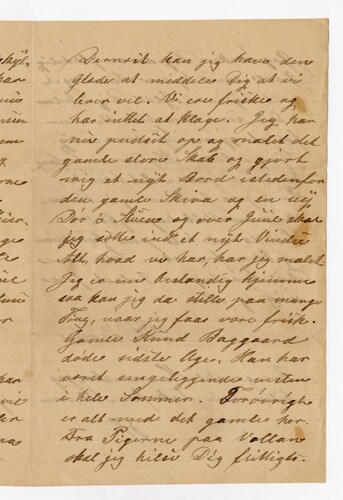 Dernæst kan jeg have den
Glæde at meddele Dig at vi
lever vel. Vi ere friske og
har intet at klage. Jeg har
nu pudset op og malet det
gamle store Skab og gjort
mig et nyt Bord istedenfor
den gamle Skiva og en ny
Dör i Stuen og over Juul skal
jeg sætte ind et nyt Vindu
Alt, hvad vi har, har jeg malet.
Jeg er nu bestandig hjemme
saa kan jeg da stelle paa mange
Ting, naar jeg faar være frisk.
Gamle Knud Baggaard
döde sidste Uge. Han har
været sengeliggende næsten
i hele Sommer. Forövrigt
er alt med det gamle her.
Fra Pigerne paa Vollan
skal jeg hilse Dig flittigst.